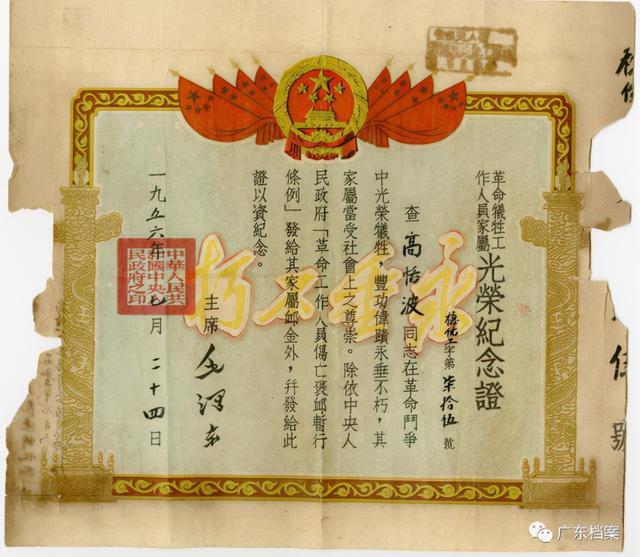 革命犧牲工
作人員家屬
光榮紀念證
字第柒拾伍號
查高恬波同志在革命鬥爭
中光榮犧牲，豐功偉蹟永垂不朽，其
家屬當受社會上之尊崇。除依中央人
民政府「革命工作人員傷亡褒卹暫行
條例」發給其家屬卹金外，幷發給此
證以資紀念。
永垂不朽
主席 毛澤東
一九五六年七月二十四日
中華人民共
和國中央人
民政府之印
號
广东档案